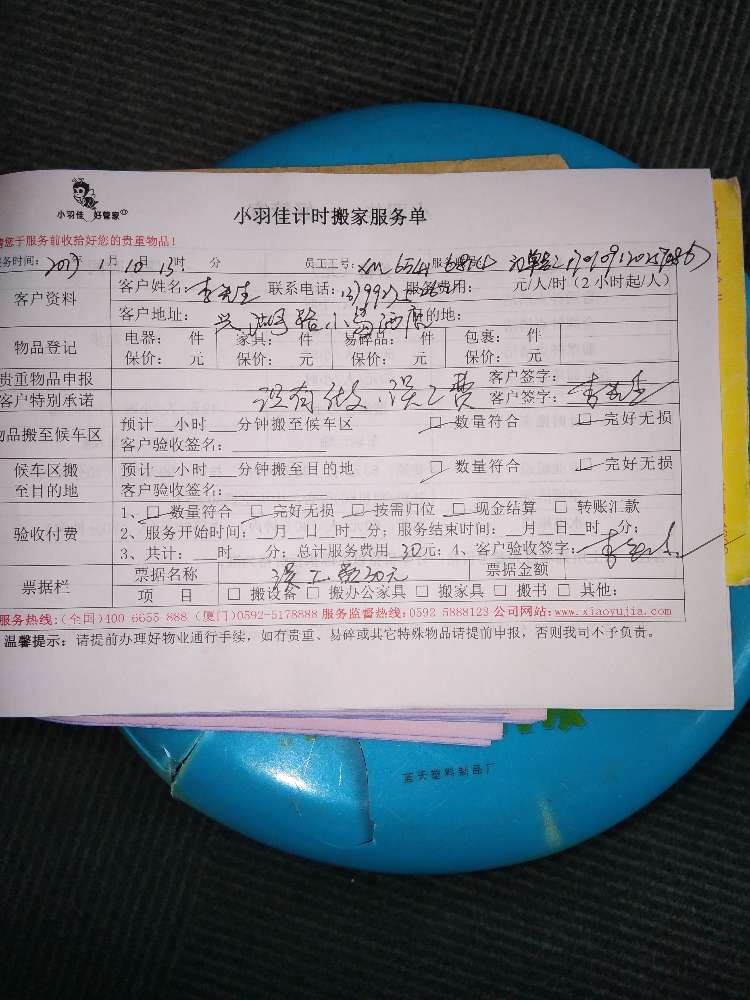 小羽佳 好管家
小羽佳计时搬家服务单
请您于服务前收拾好您的贵重物品！
服务时间： 年 1月 10日 13时 分 员工工号： 6541
客户资料 客户姓名：李先生 联系电话： 服务费用： 元/人/时（2 小时起/人）
客户地址： 目的地：
物品登记 电器： 件 家具： 件 易碎品： 件 包裹： 件
保价： 元 保价： 元 保价： 元 保价： 元
贵重物品申报 客户签字：
客户特别承诺 没有做 误工费 客户签字：李先生
物品搬至候车区 预计__小时__分钟搬至候车区 □ 数量符合 □ 完好无损
客户验收签名：
候车区搬至目的地 预计__小时__分钟搬至目的地 □ 数量符合 □ 完好无损
客户验收签名：
验收付费 1、□ 数量符合 □ 完好无损 □ 按需归位 □ 现金结算 □ 转账汇款
2、服务开始时间：__月__日__时__分；服务结束时间：__月__日__时__分；
3、共计：__时__分；总计服务费用 30元；4、客户验收签字：
票据栏 票据名称 误工费30元 票据金额
项 目 □ 搬设备 □ 搬办公家具 □ 搬家具 □ 搬书 □ 其他：
服务热线：(全国)400 6655 888 (厦门)0592-5178888 服务监督热线：0592 5888123 公司网站：www.xiaoyujia.com
温馨提示：请提前办理好物业通行手续，如有贵重、易碎或其它特殊物品请提前申报，否则我司不予负责。
蓝天塑料制品厂